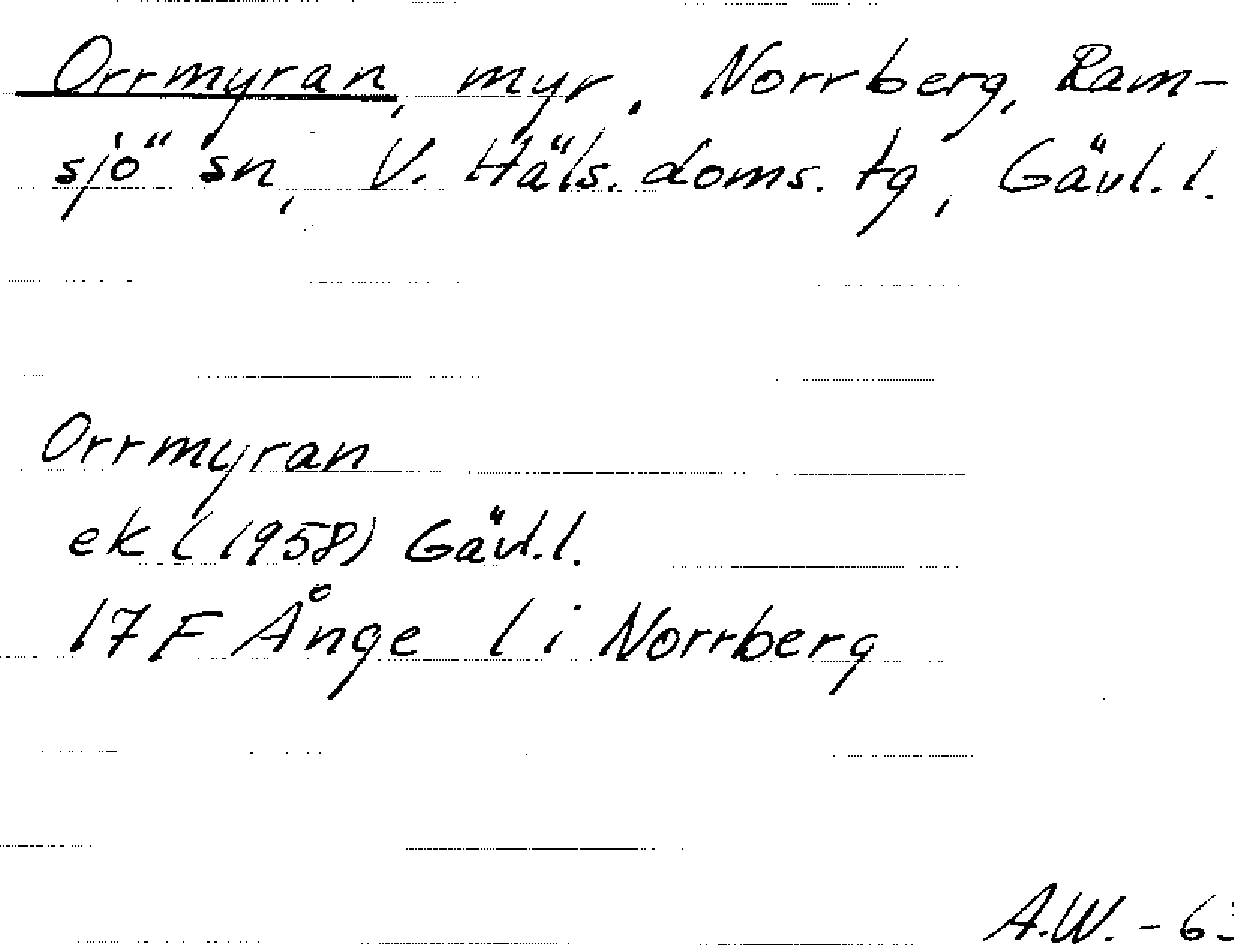 Orrmyran, myr, Norrberg, Ram-
sjö sn, V. Häls. doms. tg, Gävl. l.
Orrmyran
ek (1958) Gävl. l.
17 F Ånge l i Norrberg
A.W. - 63